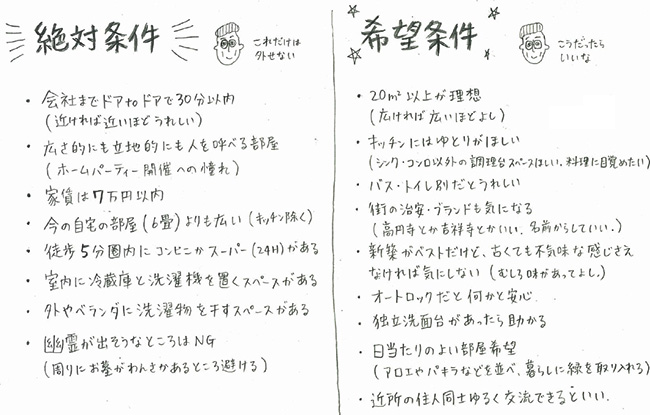 絶対条件
これだけは
外せない
・会社までドアtoドアで30分以内
(近ければ近いほどうれしい)
・広さ的にも立地的にも人を呼べる部屋
(ホームパーティー開催への憧れ)
・家賃は7万円以内
・今の自宅の部屋(6畳)よりも広い(キッチン除く)
・徒歩5分圏内にコンビニかスーパー(24H)がある
・室内に冷蔵庫と洗濯機を置くスペースがある
・外やベランダに洗濯物を干すスペースがある
・幽霊が出そうなところはNG
(周りにお墓がわんさかあるところ避ける)
希望条件
こうだったら
いいな
・20m²以上が理想
(広ければ広いほどよし)
・キッチンにはゆとりがほしい
(シンク・コンロ以外の調理台スペースほしい、料理に目覚めたい)
・バス・トイレ別だとうれしい
・街の治安・ブランドも気になる
(高円寺とか吉祥寺とかいい、名前からしていい。)
・新築がベストだけど、古くても不気味な感じさえ
なければ気にしない(むしろ味があってよし。)
・オートロックだと何かと安心
・独立洗面台があったら助かる
・日当たりのよい部屋希望
(アロエやパキラなどを並べ、暮らしに緑を取り入れる)
・近所の住人同士ゆるく交流できるといい。